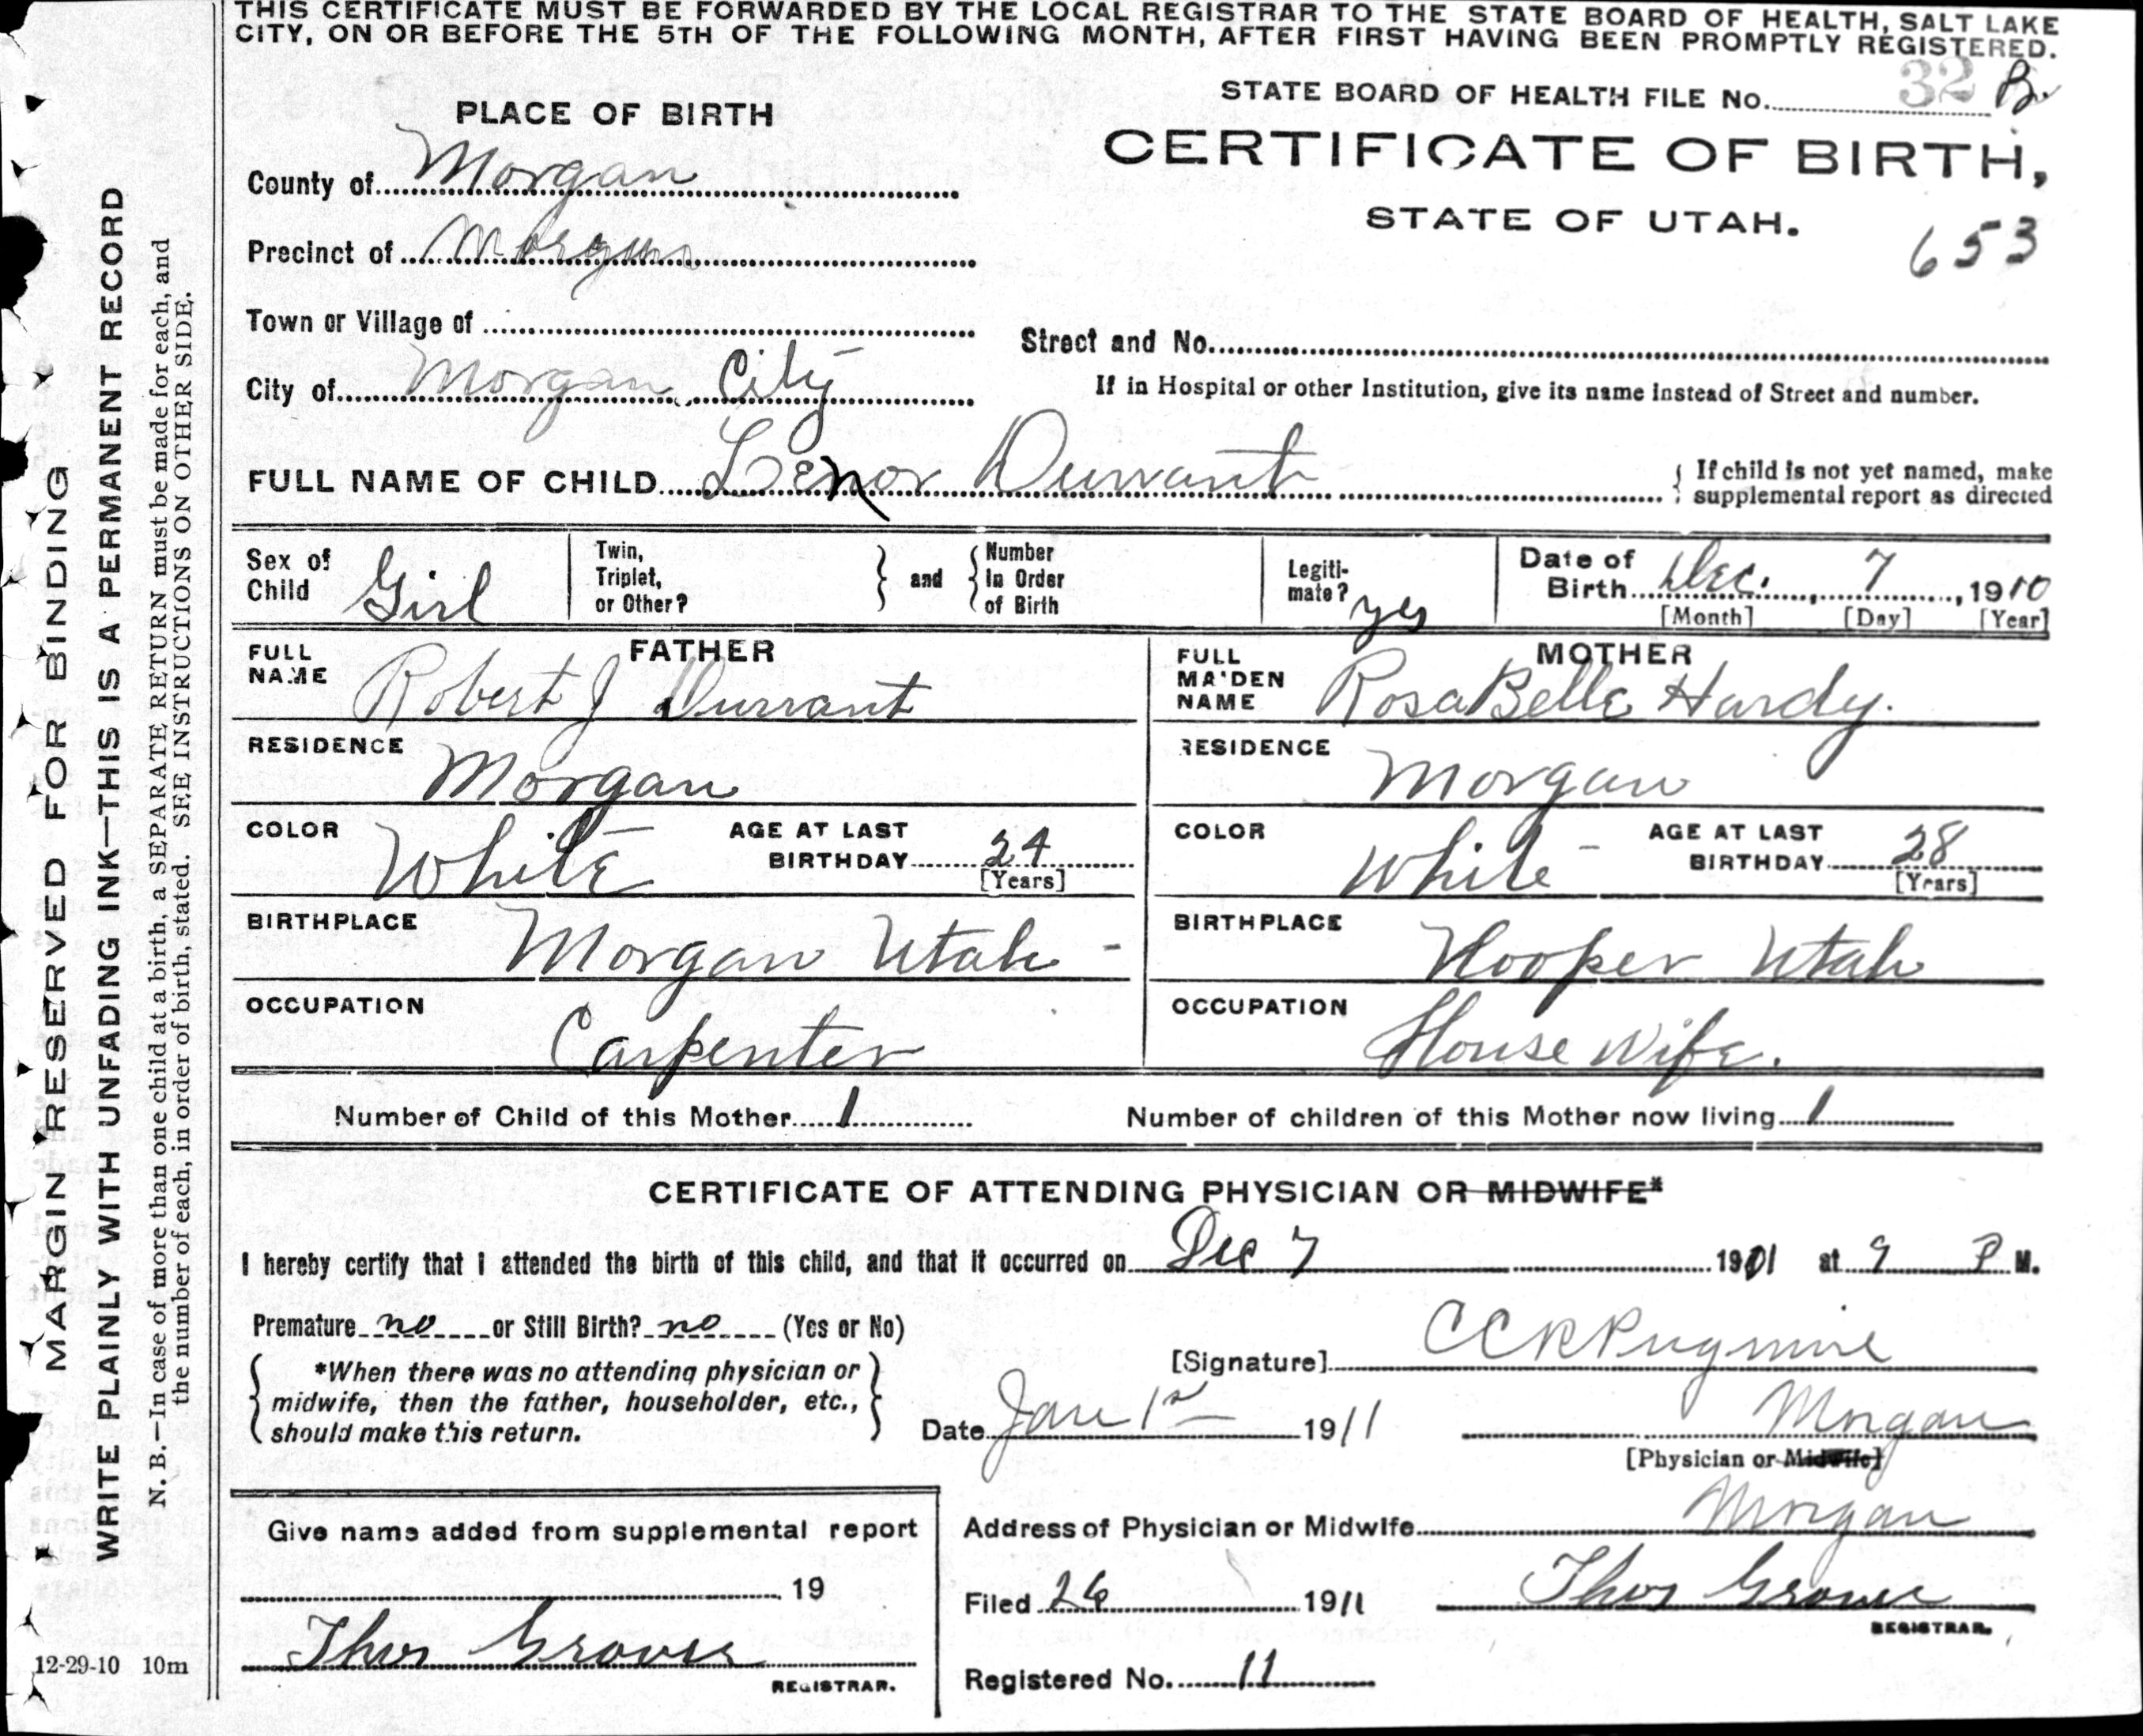 THIS CERTIFICATE MUST BE FORWARDED BY THE LOCAL REGISTRAR TO THE STATE BOARD OF HEALTH, SALT LAKE
CITY, ON OR BEFORE THE 5TH OF THE FOLLOWING MONTH, AFTER FIRST HAVING BEEN PROMPTLY REGISTERED.
STATE BOARD OF HEALTH FILE No. 32 B
PLACE OF BIRTH
CERTIFICATE OF BIRTH,
STATE OF UTAH.
653
County of Morgan
Precinct of Morgan
Town or Village of
Street and No.
City of Morgan City
If in Hospital or other Institution, give its name instead of Street and number.
FULL NAME OF CHILD Lenor Durrant
If child is not yet named, make
supplemental report as directed
Sex of Child Girl
Twin, Triplet, or Other?
and
Number in Order of Birth
Legiti-mate? yes
Date of Birth Dec. 7, 1910
[Month] [Day] [Year]
FATHER
FULL NAME Robert J Durrant
RESIDENCE Morgan
COLOR White AGE AT LAST BIRTHDAY 24 [Years]
BIRTHPLACE Morgan Utah -
OCCUPATION Carpenter
MOTHER
FULL MAIDEN NAME RosaBelle Hardy.
RESIDENCE Morgan
COLOR White AGE AT LAST BIRTHDAY 28 [Years]
BIRTHPLACE Hooper Utah
OCCUPATION House Wife.
Number of Child of this Mother 1
Number of children of this Mother now living 1
CERTIFICATE OF ATTENDING PHYSICIAN OR MIDWIFE*
I hereby certify that I attended the birth of this child, and that it occurred on Dec 7 19 at 9 P M.
Premature no or Still Birth? no (Yes or No)
*When there was no attending physician or
midwife, then the father, householder, etc.,
should make this return.
[Signature]
Date Jan 1st 1911
Morgan
[Physician or Midwife]
Address of Physician or Midwife Morgan
Give name added from supplemental report
19
Thos Grover
REGISTRAR.
Filed 26 1911
Thos Grover
REGISTRAR.
Registered No. 11
12-29-10 10m
MARGIN RESERVED FOR BINDING
WRITE PLAINLY WITH UNFADING INK—THIS IS A PERMANENT RECORD
N. B.—In case of more than one child at a birth, a SEPARATE RETURN must be made for each, and
the number of each, in order of birth, stated. SEE INSTRUCTIONS ON OTHER SIDE.